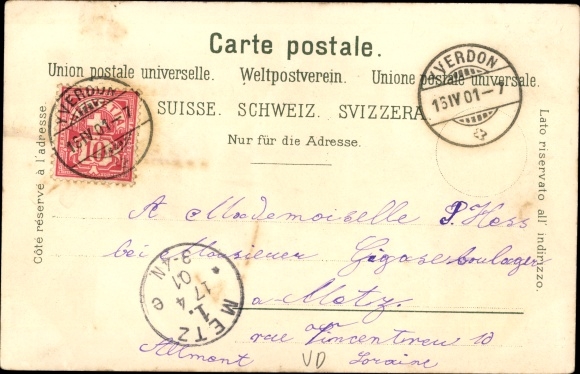 Carte postale.
Union postale universelle. Weltpostverein. Unione postale universale.
SUISSE. SCHWEIZ. SVIZZERA.
Nur für die Adresse.
Côté réservé à l'adresse.
Lato riservato all' indirizzo.
YVERDON
13 IV 01 - 7
YVERDON
13 IV 01 - 7
10
A Mademoiselle P. Hess
bei Monsieur
a Metz.
rue Vincentreu 18
Allmont VD Loraine
METZ
1. 4
17
01
3-4N